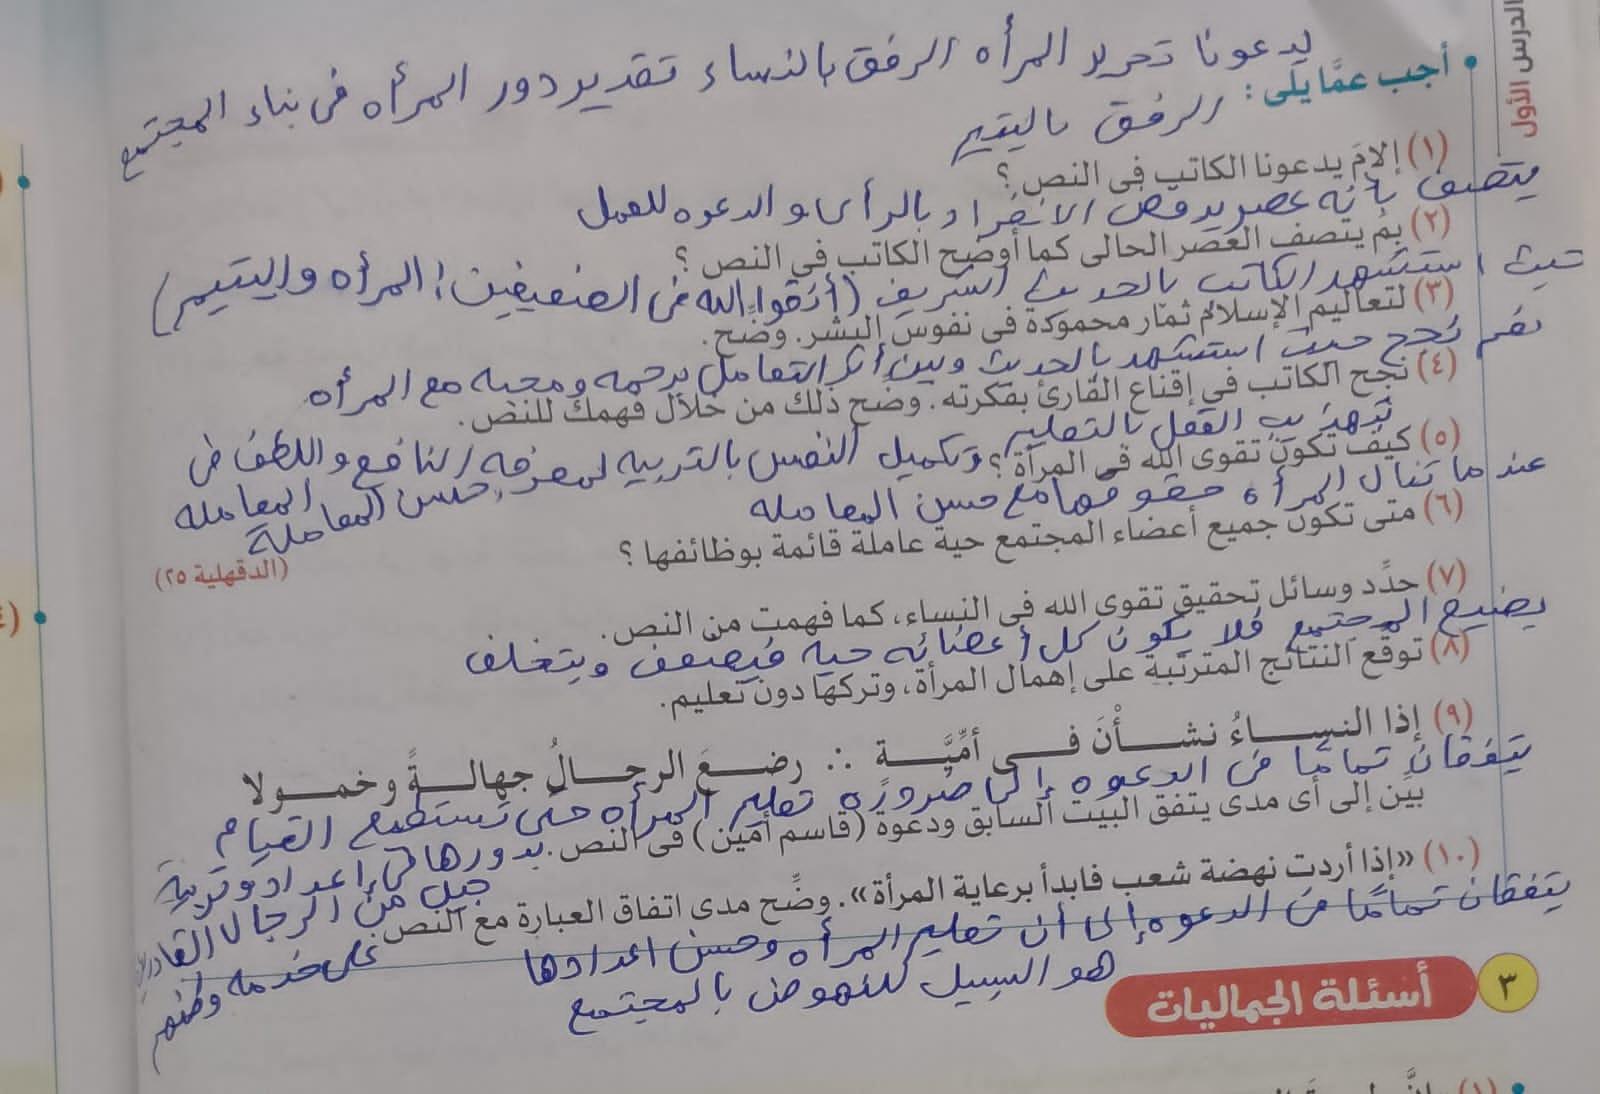 الدرس الأول
يدعونا تحرير المرأه الرفق بالنساء تقدير دور المرأه فى بناء المجتمع
• أجب عمَّا يلى :
الرفق باليتيم
(١) إلامَ يدعونا الكاتب فى النص ؟
يتصف بأنه عصر يرفض الانفراد بالرأى والدعوه للعمل
(٢) بمَ يتصف العصر الحالى كما أوضح الكاتب فى النص ؟
حيث استشهد الكاتب بالحديث الشريف (أتقوا الله فى الضعيفين: المرأه واليتيم)
(٣) لتعاليم الإسلام ثمار محمودة فى نفوس البشر. وضح.
نعم نجح حيث استشهد بالحديث وبين أثر التعامل برحمه ومحبه مع المرأه
(٤) نجح الكاتب فى إقناع القارئ بفكرته. وضح ذلك من خلال فهمك للنص.
تهذيب العقل بالتعليم وتكميل النفس بالتربيه لمعرفه النافع واللطف فى المعامله
(٥) كيف تكون تقوى الله فى المرأة ؟
حسن المعاملة
عندما تنال المرأه حقوقها مع حسن المعامله
(٦) متى تكون جميع أعضاء المجتمع حية عاملة قائمة بوظائفها ؟
(الدقهلية ٢٥)
(٧) حدِّد وسائل تحقيق تقوى الله فى النساء، كما فهمت من النص.
يضيع المجتمع فلا يكون كل أعضائه حيه فيضعف ويتخلف
(٨) توقع النتائج المترتبة على إهمال المرأة، وتركها دون تعليم.
(٩) إذا النساءُ نشأْنَ فى أمِّيَّة ∴ رضعَ الرجالُ جهالةً وخمولا
يتفقان تمامًا فى الدعوه إلى ضروره تعليم المرأه حتى تستطيع القيام
بيِّن إلى أى مدى يتفق البيت السابق ودعوة (قاسم أمين) فى النص.
بدورها فى إعداد وتربية
جيل من الرجال القادرين
(١٠) «إذا أردت نهضة شعب فابدأ برعاية المرأة». وضِّح مدى اتفاق العبارة مع النص.
على خدمه وطنهم
يتفقان تمامًا فى الدعوه إلى أن تعليم المرأه وحسن اعدادها
هو السبيل للنهوض بالمجتمع
٣ أسئلة الجماليات